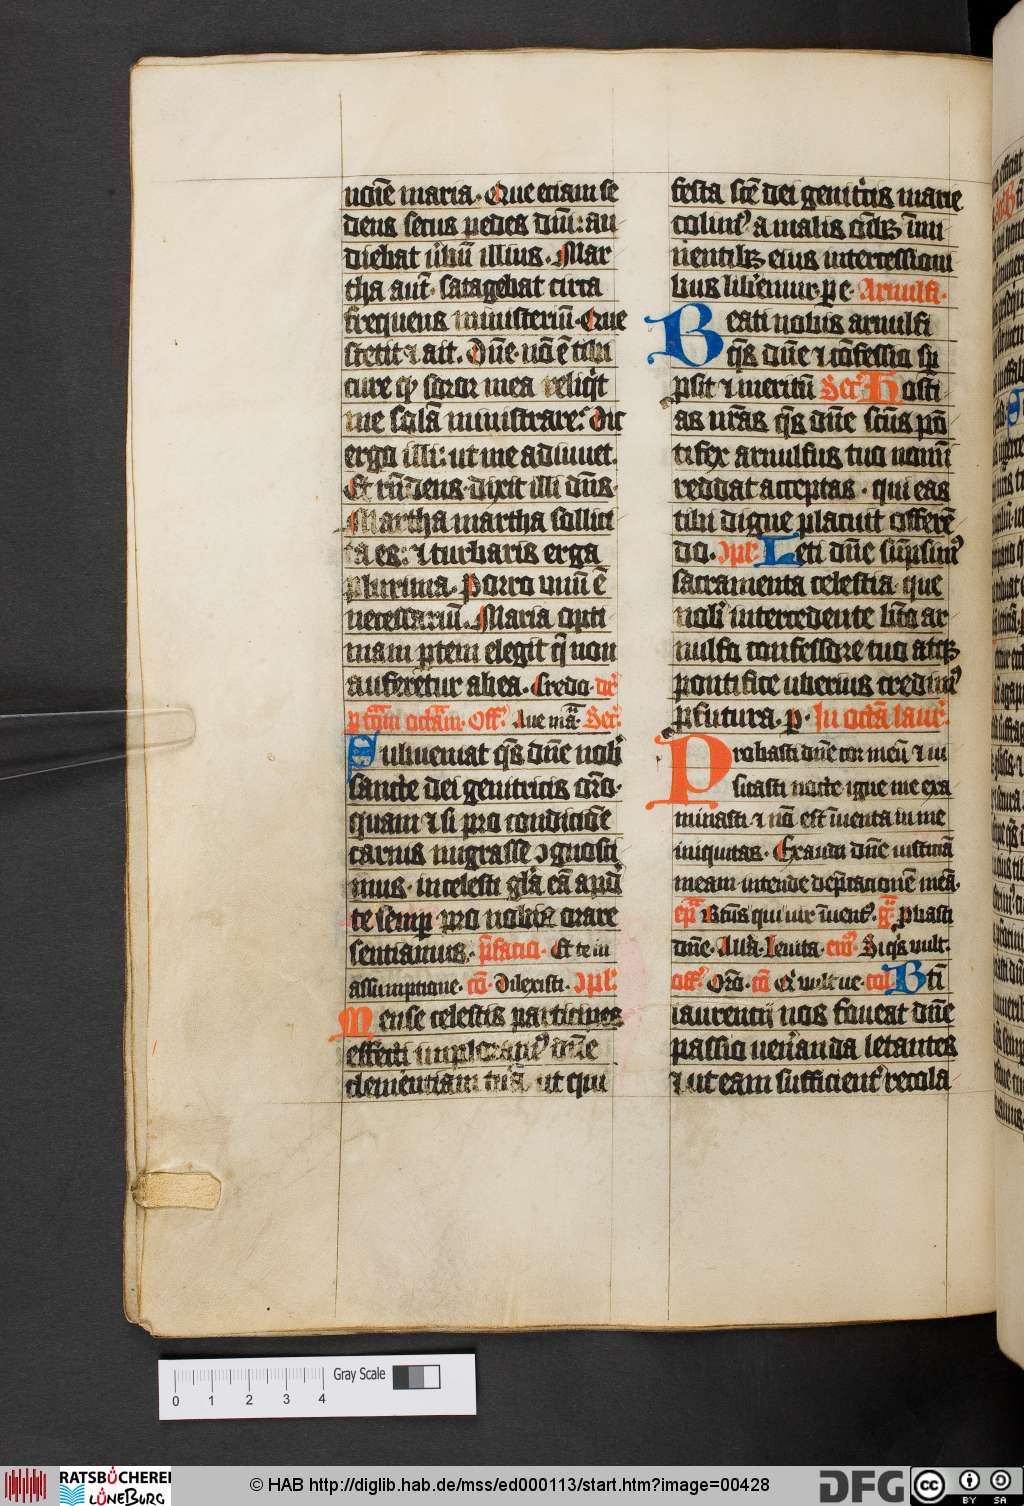 noīe maria. Que etiam se
dens secus pedes dn̄i: au
diebat ūbū illius. Mar
tha aut̄. satagebat circa
frequens ministeriū. Que
stetit ⁊ ait. Dn̄e. nō ē tibi
cure qꝫ soror mea reliqͥt
me solā ministrare. Dic
ergo illi: ut me adiuuet.
Et rn̄dens. dixit illi dn̄s.
Martha martha sollici
ta es: ⁊ turbaris erga
plurima. Porro unū ē
necessariū. Maria opti
mam ꝑtem elegit q̄ non
auferetur ab ea. Credo. dr̄
Off̄. Aue mᵃ. Secͬ.
Subueniat qͣs dn̄e nobͥ
sancte dei genitricis orō.
quam ⁊ si pro condiciōe
carnis migrasse ↄgnosci
mus. in celesti glͣa eā apḋ
te semꝑ pro nobis orare
sentiamus. p̄facio. Et te in
assumptione. cō. Dilexisti. ↄpl̄.
Mense celestis participes
effecti imploramꝰ dn̄e
clementiam tuā. ut qui
festa scē dei genitͥcis marie
colimꝰ a malis oībꝫ īmi
nentibꝫ eius intercessioni
bus liberemur. p c. Arnulfi.
Beati nobis arnulfi
qͣs dn̄e ⁊ cōfessio sꝑ
ꝓsit ⁊ meritū Secͬ. Hosti
as nr̄as qͣs dn̄e scūs pō
tifex arnulfus tuo nomī
reddat acceptas. qui eas
tibi digne placuit offerē
do. ↄpl̄. Leti dn̄e sūpsimꝰ
sacramenta celestia. que
nobͥ intercedente btō ar
nulfo confessore tuo atqꝫ
pontifice uberius credimꝰ
ꝓfutura. p. In octā laurͨ.
Probasti dn̄e cor meū ⁊ ui
sitasti nocte igne me exa
minasti ⁊ nō est īuenta in me
iniquitas. Exaudi dn̄e iusticiā
meam intende dep̄cationē meā.
ep̄la Btūs qui uir īuentꝰ. gͬ. Probasti
dn̄e. Alla. Leuita. euͫ. Siqͥs uult.
off̄. Orō. cō Qͥ uult ue. col. Bti
laurentij nos foueat dn̄e
passio uen̄anda letantes
⁊ ut eam sufficientͬ recola
0 1 2 3 4
Gray Scale
RATSBÜCHEREI
LÜNEBURG
© HAB http://diglib.hab.de/mss/ed000113/start.htm?image=00428
DFG
cc BY SA